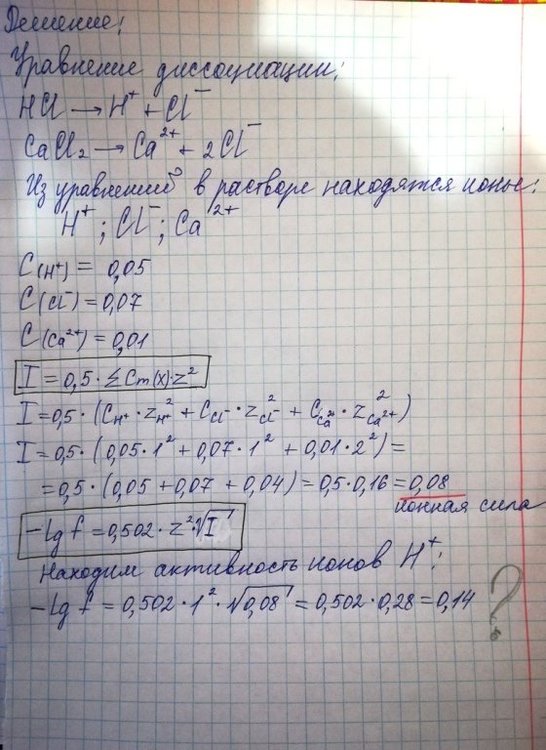 Решение:
Уравнение диссоциации:
HCl → H⁺ + Cl⁻
CaCl₂ → Ca²⁺ + 2Cl⁻
Из уравнений в растворе находятся ионы:
H⁺; Cl⁻; Ca²⁺
C(H⁺) = 0,05
C(Cl⁻) = 0,07
C(Ca²⁺) = 0,01
I = 0,5 · Σ Cm(x) · z²
I = 0,5 · (C_H⁺ · z²_H⁺ + C_Cl⁻ · z²_Cl⁻ + C_Ca²⁺ · z²_Ca²⁺)
I = 0,5 · (0,05 · 1² + 0,07 · 1² + 0,01 · 2²) =
= 0,5 · (0,05 + 0,07 + 0,04) = 0,5 · 0,16 = 0,08
ионная сила
-lg f = 0,502 · z² · √I
Находим активность ионов H⁺:
-lg f = 0,502 · 1² · √0,08 = 0,502 · 0,28 = 0,14
?